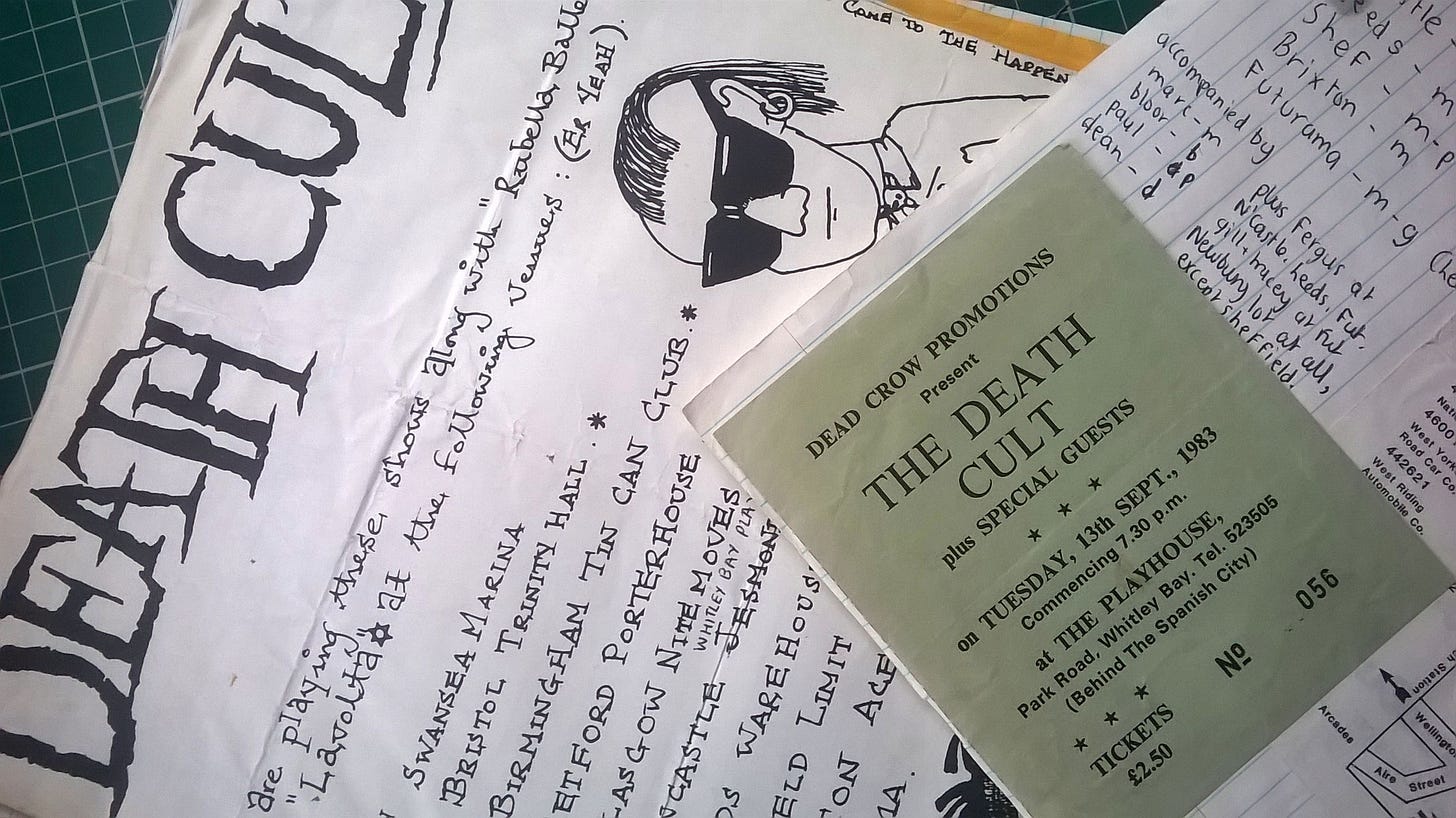 DEATH CUL
are playing these shows along with "Rabella, Balle
"Lavolta" at the following venues : (ER YEAH).
SWANSEA MARINA
BRISTOL TRINITY HALL.*
BIRMINGHAM TIN CAN CLUB.*
ETFORD PORTERHOUSE
LASGOW NITE MOVES
WHITLEY BAY PLA
CASTLE JESMON
DS WAREHOUS
ELD LIMIT
ON ACE
MA.
COME TO THE HAPPEN
eeds -
Shef - m-p
Brixton - m
Futurama - m-g
accompanied by
marc - m
bloor - b
paul - p
dean - d
plus Fergus at
N'castle. Leeds, Fut.
gill + tracey at Fut.
Newbury lot at all,
except sheffield.
DEAD CROW PROMOTIONS
Present
THE DEATH
CULT
plus SPECIAL GUESTS
★ ★ ★
on TUESDAY, 13th SEPT., 1983
Commencing 7.30 p.m.
at THE PLAYHOUSE,
Park Road, Whitley Bay. Tel. 523505
(Behind The Spanish City)
Nº 056
★ ★ ★
TICKETS
£2.50
4600
West York
Road Car Co
442621
West Riding
Automobile Co.
Station
Wellingto
Arcades
Aire
Street